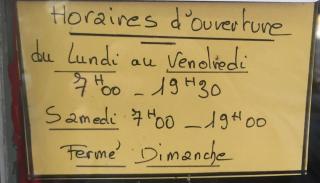 Horaires d'ouverture
du Lundi au Vendredi
7H00 - 19H30
Samedi 7H00 - 19H00
Fermé Dimanche